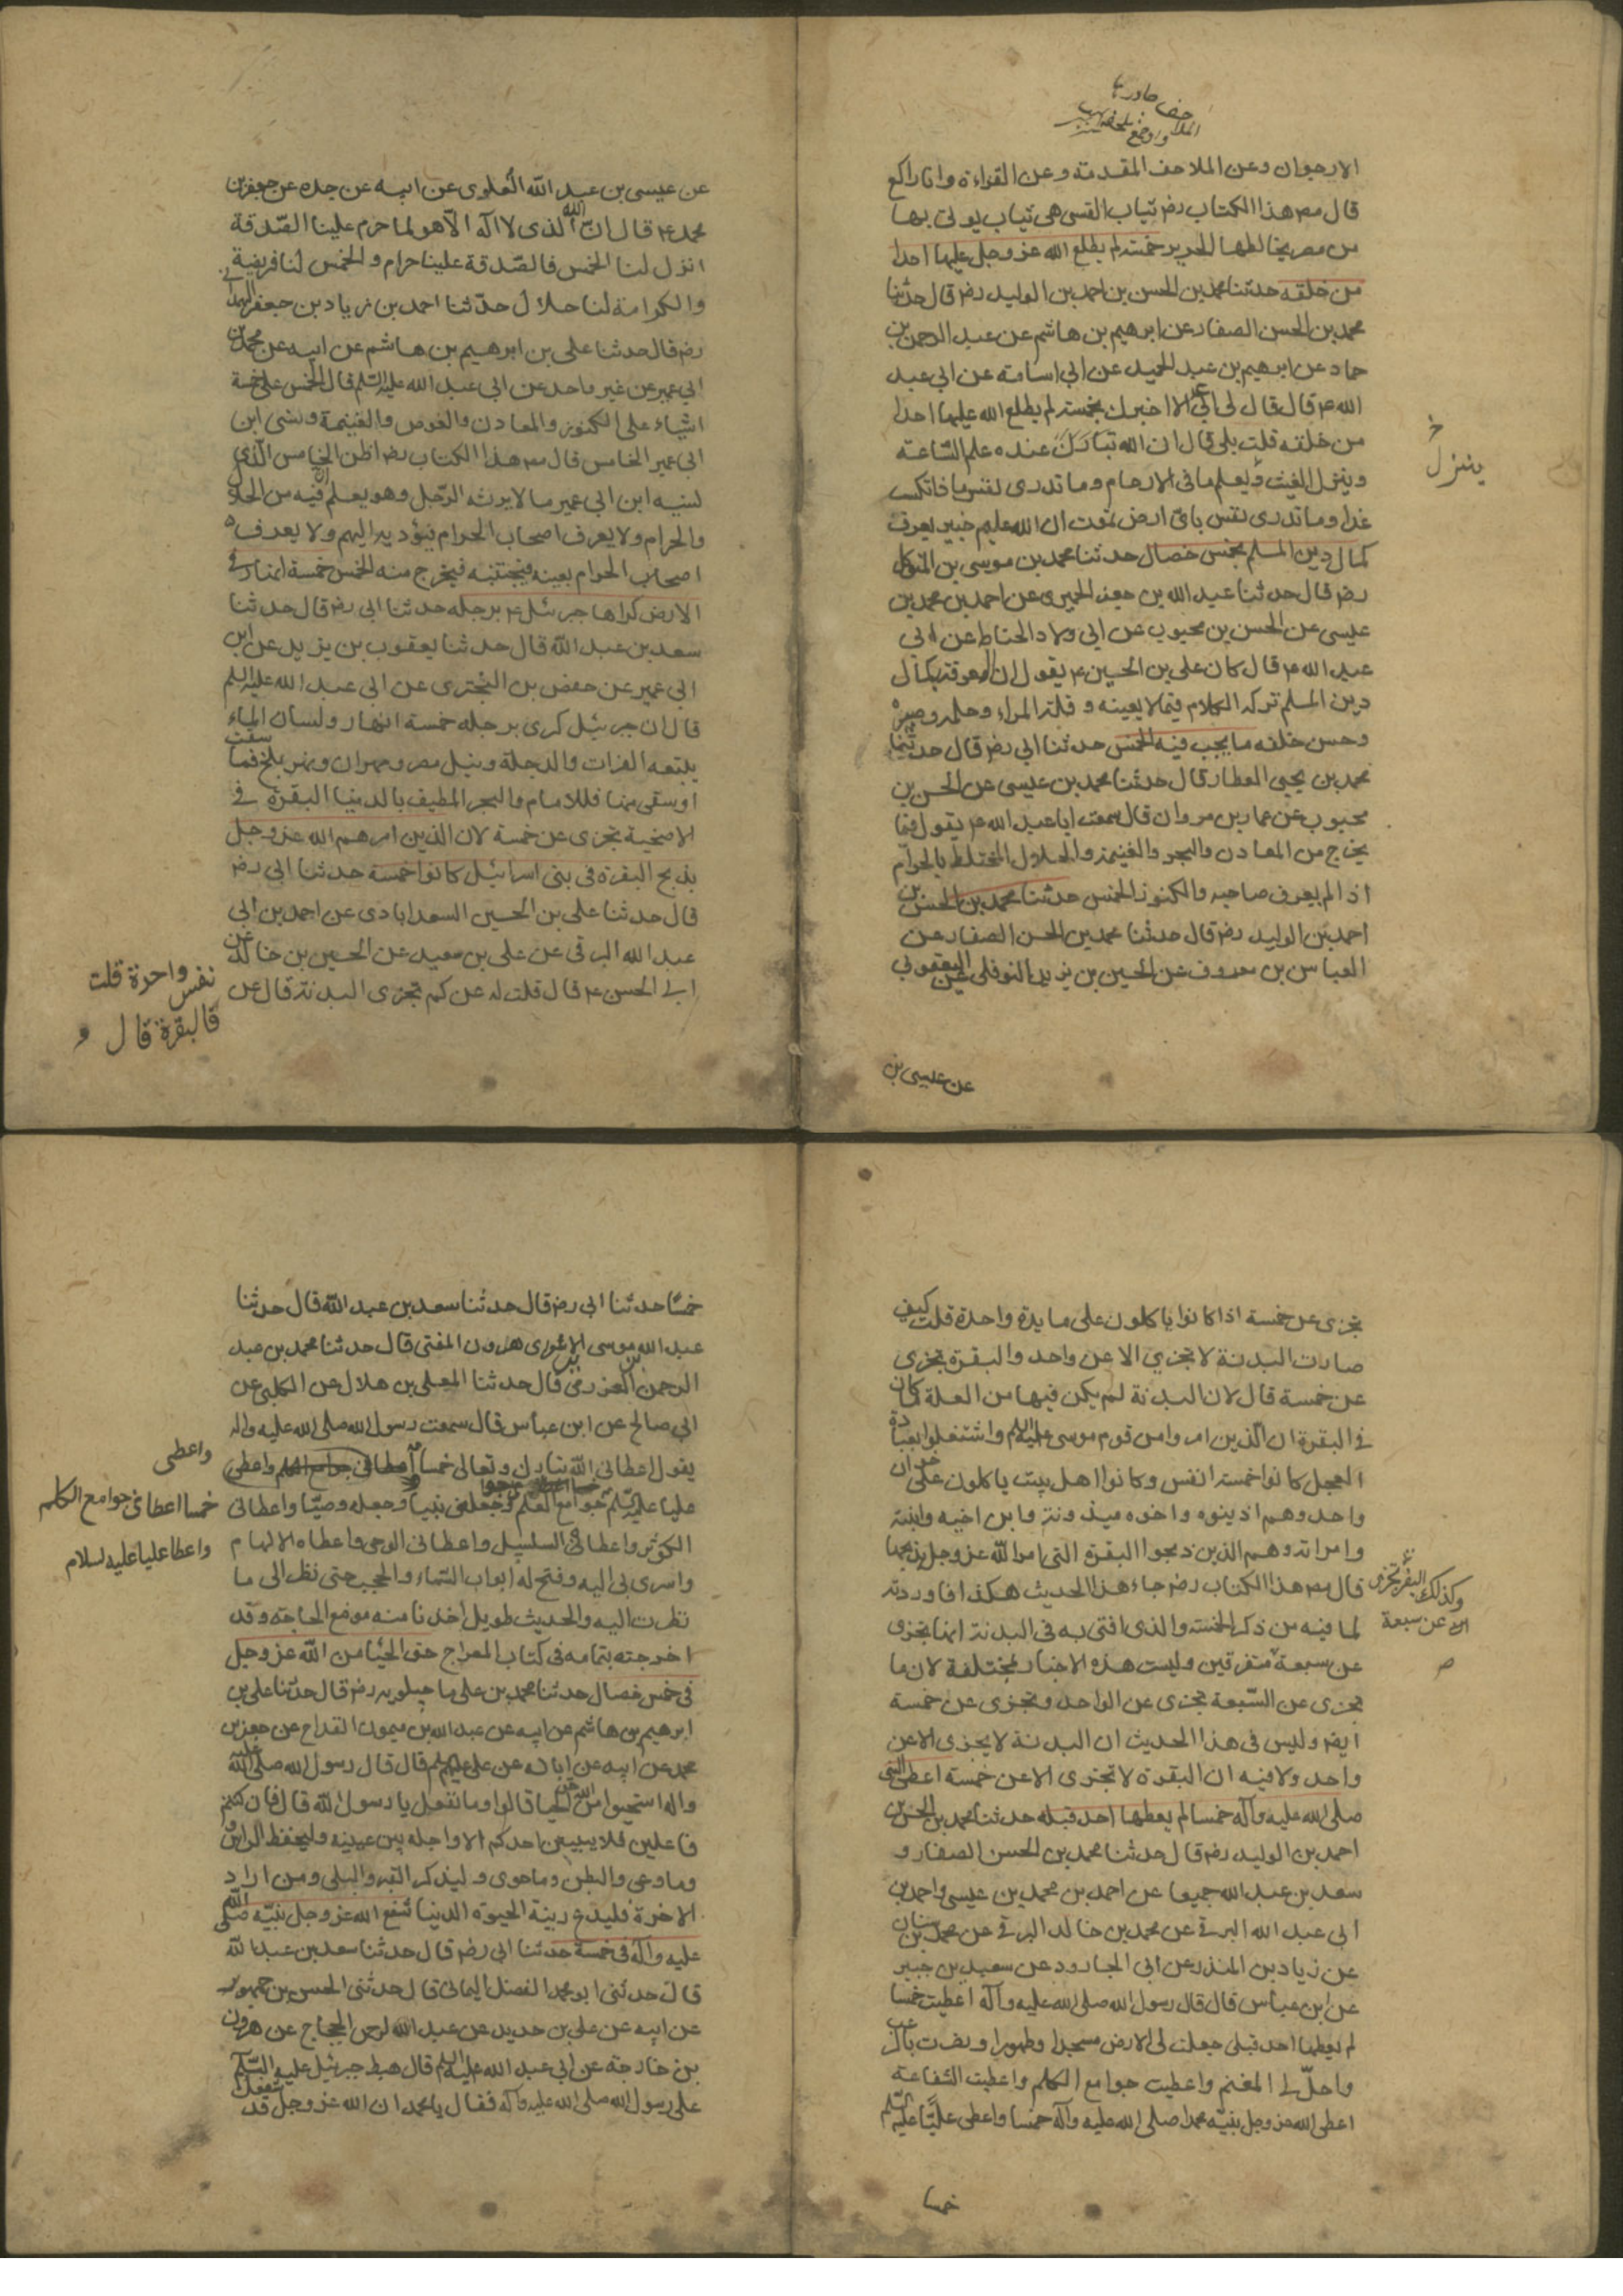 الارجوان وعن الملاحف المقدمة وعن القراءة وانا راكع
قال مص هذا الكتاب رض ثياب القسى هى ثياب يوتى بها
من مصر يخالطها الحرير خمسة لم يطلع الله عز وجل عليها احدا
من خلقه حدثنا محمد بن الحسن بن احمد بن الوليد رض قال حدثنا
محمد بن الحسن الصفار عن ابرهيم بن هاشم عن عبد الرحمن بن
حماد عن ابرهيم بن عبد الحميد عن ابي اسامة عن ابي عبد
الله ع قال قال لى ابي ع الا اخبرك بخمسة لم يطلع الله عليها احدا
من خلقه قلت بلى قال ان الله تبارك عنده علم الساعة
وينزل الغيث ويعلم مافى الارحام وما تدرى نفس ماذا تكسب
غدا وما تدرى نفس باى ارض تموت ان الله عليم خبير يعرف
كمال دين المسلم بخمس خصال حدثنا محمد بن موسى بن المتوكل
رض قال حدثنا عبد الله بن جعفر الحميرى عن احمد بن محمد بن
عيسى عن الحسن بن محبوب عن ابي ولاد الحناط عن ابي
عبد الله ع قال كان على بن الحسين ع يقول ان المعرفة بكمال
دين المسلم تركه الكلام فيما لا يعنيه وقلة المراء وحلمه وصبره
وحسن خلقه ما يجب فيه الخمس حدثنا ابي رض قال حدثنا
محمد بن يحيى العطار قال حدثنا محمد بن عيسى عن الحسن بن
محبوب عن عمار بن مروان قال سمعت ابا عبد الله ع يقول فيما
يخرج من المعادن والبحر والغنيمة والحلال المختلط بالحرام
اذا لم يعرف صاحبه والكنوز الخمس حدثنا محمد بن الحسن بن
احمد بن الوليد رض قال حدثنا محمد بن الحسن الصفار عن
العباس بن معروف عن الحسين بن يزيد النوفلى عن اليعقوبي
عن عيسى بن
ينزل
عن عيسى بن عبد الله العلوى عن ابيه عن جده عن جعفر بن
محمد ع قال ان الله الذى لا اله الا هو لما حرم علينا الصدقة
انزل لنا الخمس فالصدقة علينا حرام والخمس لنا فريضة
والكرامة لنا حلال حدثنا احمد بن زياد بن جعفر الهمداني
رض قال حدثنا على بن ابرهيم بن هاشم عن ابيه عن محمد بن
ابي عمير عن غير واحد عن ابي عبد الله عليه السلم قال الخمس على خمسة
اشياء على الكنوز والمعادن والغوص والغنيمة ونسى ابن
ابي عمير الخامس قال مص هذا الكتاب رض اظن الخامس الذى
نسيه ابن ابي عمير مالا يرثه الرجل وهو يعلم ان فيه من الحلال
والحرام ولا يعرف اصحاب الحرام فيؤديه اليهم ولا يعرف
اصحاب الحرام بعينه فيجتنبه فيخرج منه الخمس خمسة انهار فى
الارض كراها جبرئيل ع برجله حدثنا ابي رض قال حدثنا
سعد بن عبد الله قال حدثنا يعقوب بن يزيد عن ابن
ابي عمير عن حفص بن البخترى عن ابي عبد الله عليه السلم
قال ان جبرئيل كرى برجله خمسة انهار ولسان الماء
يتبعه الفرات والدجلة ونيل مصر ومهران ونهر بلخ فما سقت
او سقى منها فللامام والبحر المطيف بالدنيا البقرة فى
الاضحية تجزى عن خمسة لان الذين امرهم الله عز وجل
بذبح البقرة فى بنى اسرائيل كانوا خمسة حدثنا ابي رض
قال حدثنا على بن الحسين السعدابادى عن احمد بن ابي
عبد الله البرقى عن على بن معبد عن الحسين بن خالد عن
ابي الحسن ع قال قلت له عن كم تجزى البدنة قال عن
نفس واحدة قلت
فالبقرة قال
تجزى عن خمسة اذا كانوا ياكلون على مايدة واحدة قلت كيف
صارت البدنة لا تجزي الا عن واحد والبقرة تجزى
عن خمسة قال لان البدنة لم يكن فيها من العلة ما كان
فى البقرة ان الذين امروا من قوم موسى عليه السلم واشتغلوا بعبادة
العجل كانوا خمسة انفس وكانوا اهل بيت ياكلون على خوان
واحد وهم اذينوه واخوه ميذونة وابن اخيه وابنته
وامراته وهم الذين ذبحوا البقرة التى امر الله عز وجل بذبحها
قال مص هذا الكتاب رض جاء هذا الحديث هكذا فاوردته
لما فيه من ذكر الخمسة والذى افتى به فى البدنة انها تجزى
عن سبعة متفرقين وليست هذه الاخبار مختلفة لان ما
تجزى عن السبعة تجزى عن الواحد وتجزى عن خمسة
ايض وليس فى هذا الحديث ان البدنة لا يجزى الا عن
واحد ولا فيه ان البقرة لا تجزى الا عن خمسة اعطى النبى
صلى الله عليه وآله خمسا لم يعطها احد قبله حدثنا محمد بن الحسن بن
احمد بن الوليد رض قال حدثنا محمد بن الحسن الصفار و
سعد بن عبد الله جميعا عن احمد بن محمد بن عيسى واحمد بن
ابى عبد الله البرقى عن محمد بن خالد البرقى عن محمد بن سنان
عن زياد بن المنذر عن ابى الجارود عن سعيد بن جبير
عن ابن عباس قال قال رسول الله صلى الله عليه وآله اعطيت خمسا
لم يعطها احد قبلى جعلت لى الارض مسجدا وطهورا ونصرت بالرعب
واحل لى المغنم واعطيت جوامع الكلم واعطيت الشفاعة
اعطى الله عز وجل نبيه محمدا صلى الله عليه وآله خمسا واعطى عليا عليه السلم
خمسا
وكذلك البقر تجزى
عن سبعة
خمسا حدثنا ابي رض قال حدثنا سعد بن عبد الله قال حدثنا
عبد الله بن موسى بن هرون المفتى قال حدثنا محمد بن عبد
الرحمن العزرمى قال حدثنا المعلى بن هلال عن الكلبى عن
ابي صالح عن ابن عباس قال سمعت رسول الله صلى الله عليه واله
يقول اعطانى الله تبارك وتعالى خمسا
عليا عليه السلم جوامع العلم وجعلنى نبيا وجعله وصيا واعطانى
الكوثر واعطاه السلسبيل واعطانى الوحى واعطاه الالهام
واسرى بى اليه وفتح له ابواب السماء والحجب حتى نظر الى ما
نظرت اليه والحديث طويل اخذنا منه موضع الحاجة وقد
اخرجته بتمامه فى كتاب المعراج حق الحيا من الله عز وجل
فى خمس خصال حدثنا محمد بن على ماجيلويه رض قال حدثنا على بن
ابرهيم بن هاشم عن ابيه عن عبد الله بن ميمون القداح عن جعفر بن
محمد عن ابيه عن ابائه عن على عليهم السلم قال قال رسول الله صلى الله عليه
واله استحيوا من الله حق الحيا قالوا وما نفعل يا رسول الله قال فان كنتم
فاعلين فلا يبيتن احدكم الا واجله بين عينيه وليحفظ الراس
وما وعى والبطن وما حوى وليذكر القبر والبلى ومن اراد
الاخرة فليدع زينة الحيوة الدنيا شفع الله عز وجل نبيه صلى الله
عليه وآله فى خمسة حدثنا ابى رض قال حدثنا سعد بن عبد الله
قال حدثنى ابو محمد الفضل اليمانى قال حدثنى الحسن بن جمهور
عن ابيه عن على بن حديد عن عبد الرحمن بن الحجاج عن هرون
بن خارجة عن ابي عبد الله عليه السلم قال هبط جبرئيل عليه السلم
على رسول الله صلى الله عليه وآله فقال يا محمد ان الله عز وجل قد شفعك
واعطى
خمسا اعطانى جوامع الكلم
واعطا عليا عليه لسلام